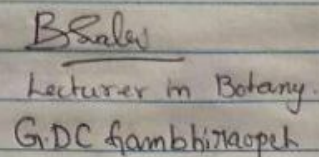 Lecturer in Botany.
G.DC Gambhiraopet